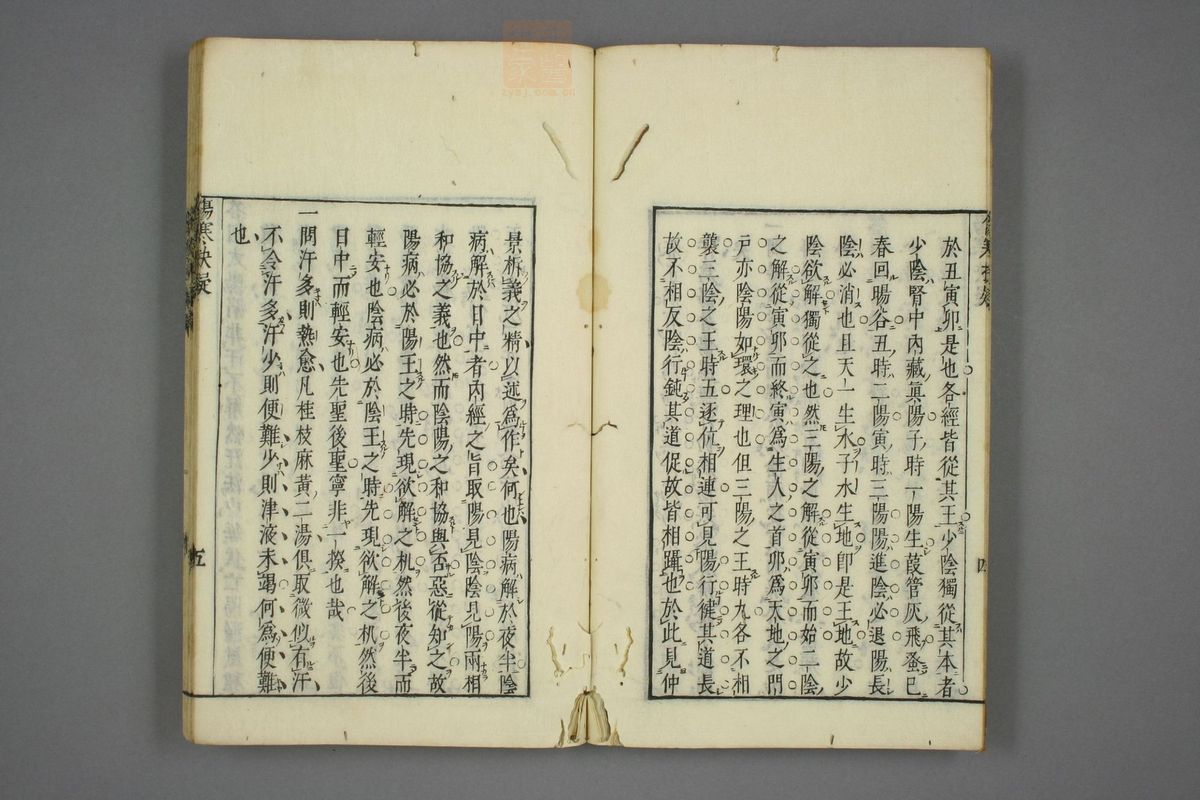 於丑寅卯是也各經皆從其王少陰獨從其本者
少陰腎中內藏眞陽子時一陽生葭管灰飛蚤已
春回暘谷丑時二陽寅時三陽陽進陰必退陽長
陰必消也且天一生水子水生地卽是王地故少
陰欲解獨從之也然三陽之解從寅卯而始三陰
之解從寅卯而終寅爲生人之首卯爲天地之門
戶亦陰陽如環之理也但三陽之王時九各不相
襲三陰之王時五逐位相連可見陽行健其道長
故不相反陰行鈍其道促故皆相躡也於此見仲
四
景析義之精以述爲作矣何也陽病解於夜半陰
病解於日中者內經之旨取陽見陰陰見陽兩相
和協之義也然而陰陽之和協與否惡從知之故
陽病必於陽王之時先現欲解之机然後夜半而
輕安也陰病必於陰王之時先現欲解之机然後
日中而輕安也先聖後聖寧非一揆也哉
一問汗多則熱愈凡桂枝麻黃二湯俱取微似有汗
不令汗多汗少則便難少則津液未竭何爲便難
也
傷寒抉疑
五